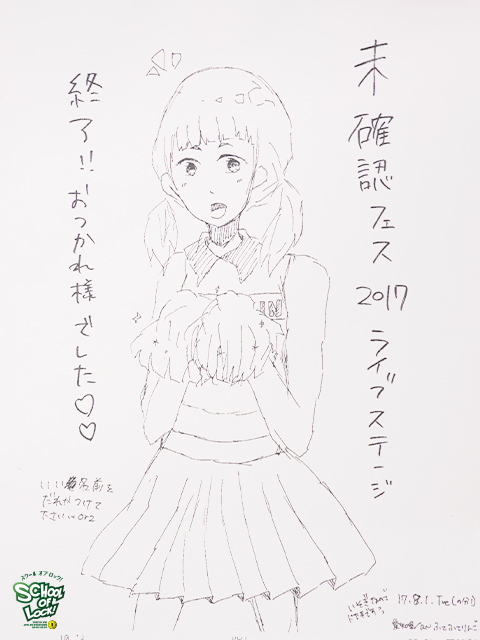 未確認フェス2017ライブステージ
終了!!おつかれ様でした♡♡
いい名前を
だれかつけて
下さいw orz
17.8.1.Tue(の分)
スクール オブ ロック!
SCHOOL
OF
LOCK!